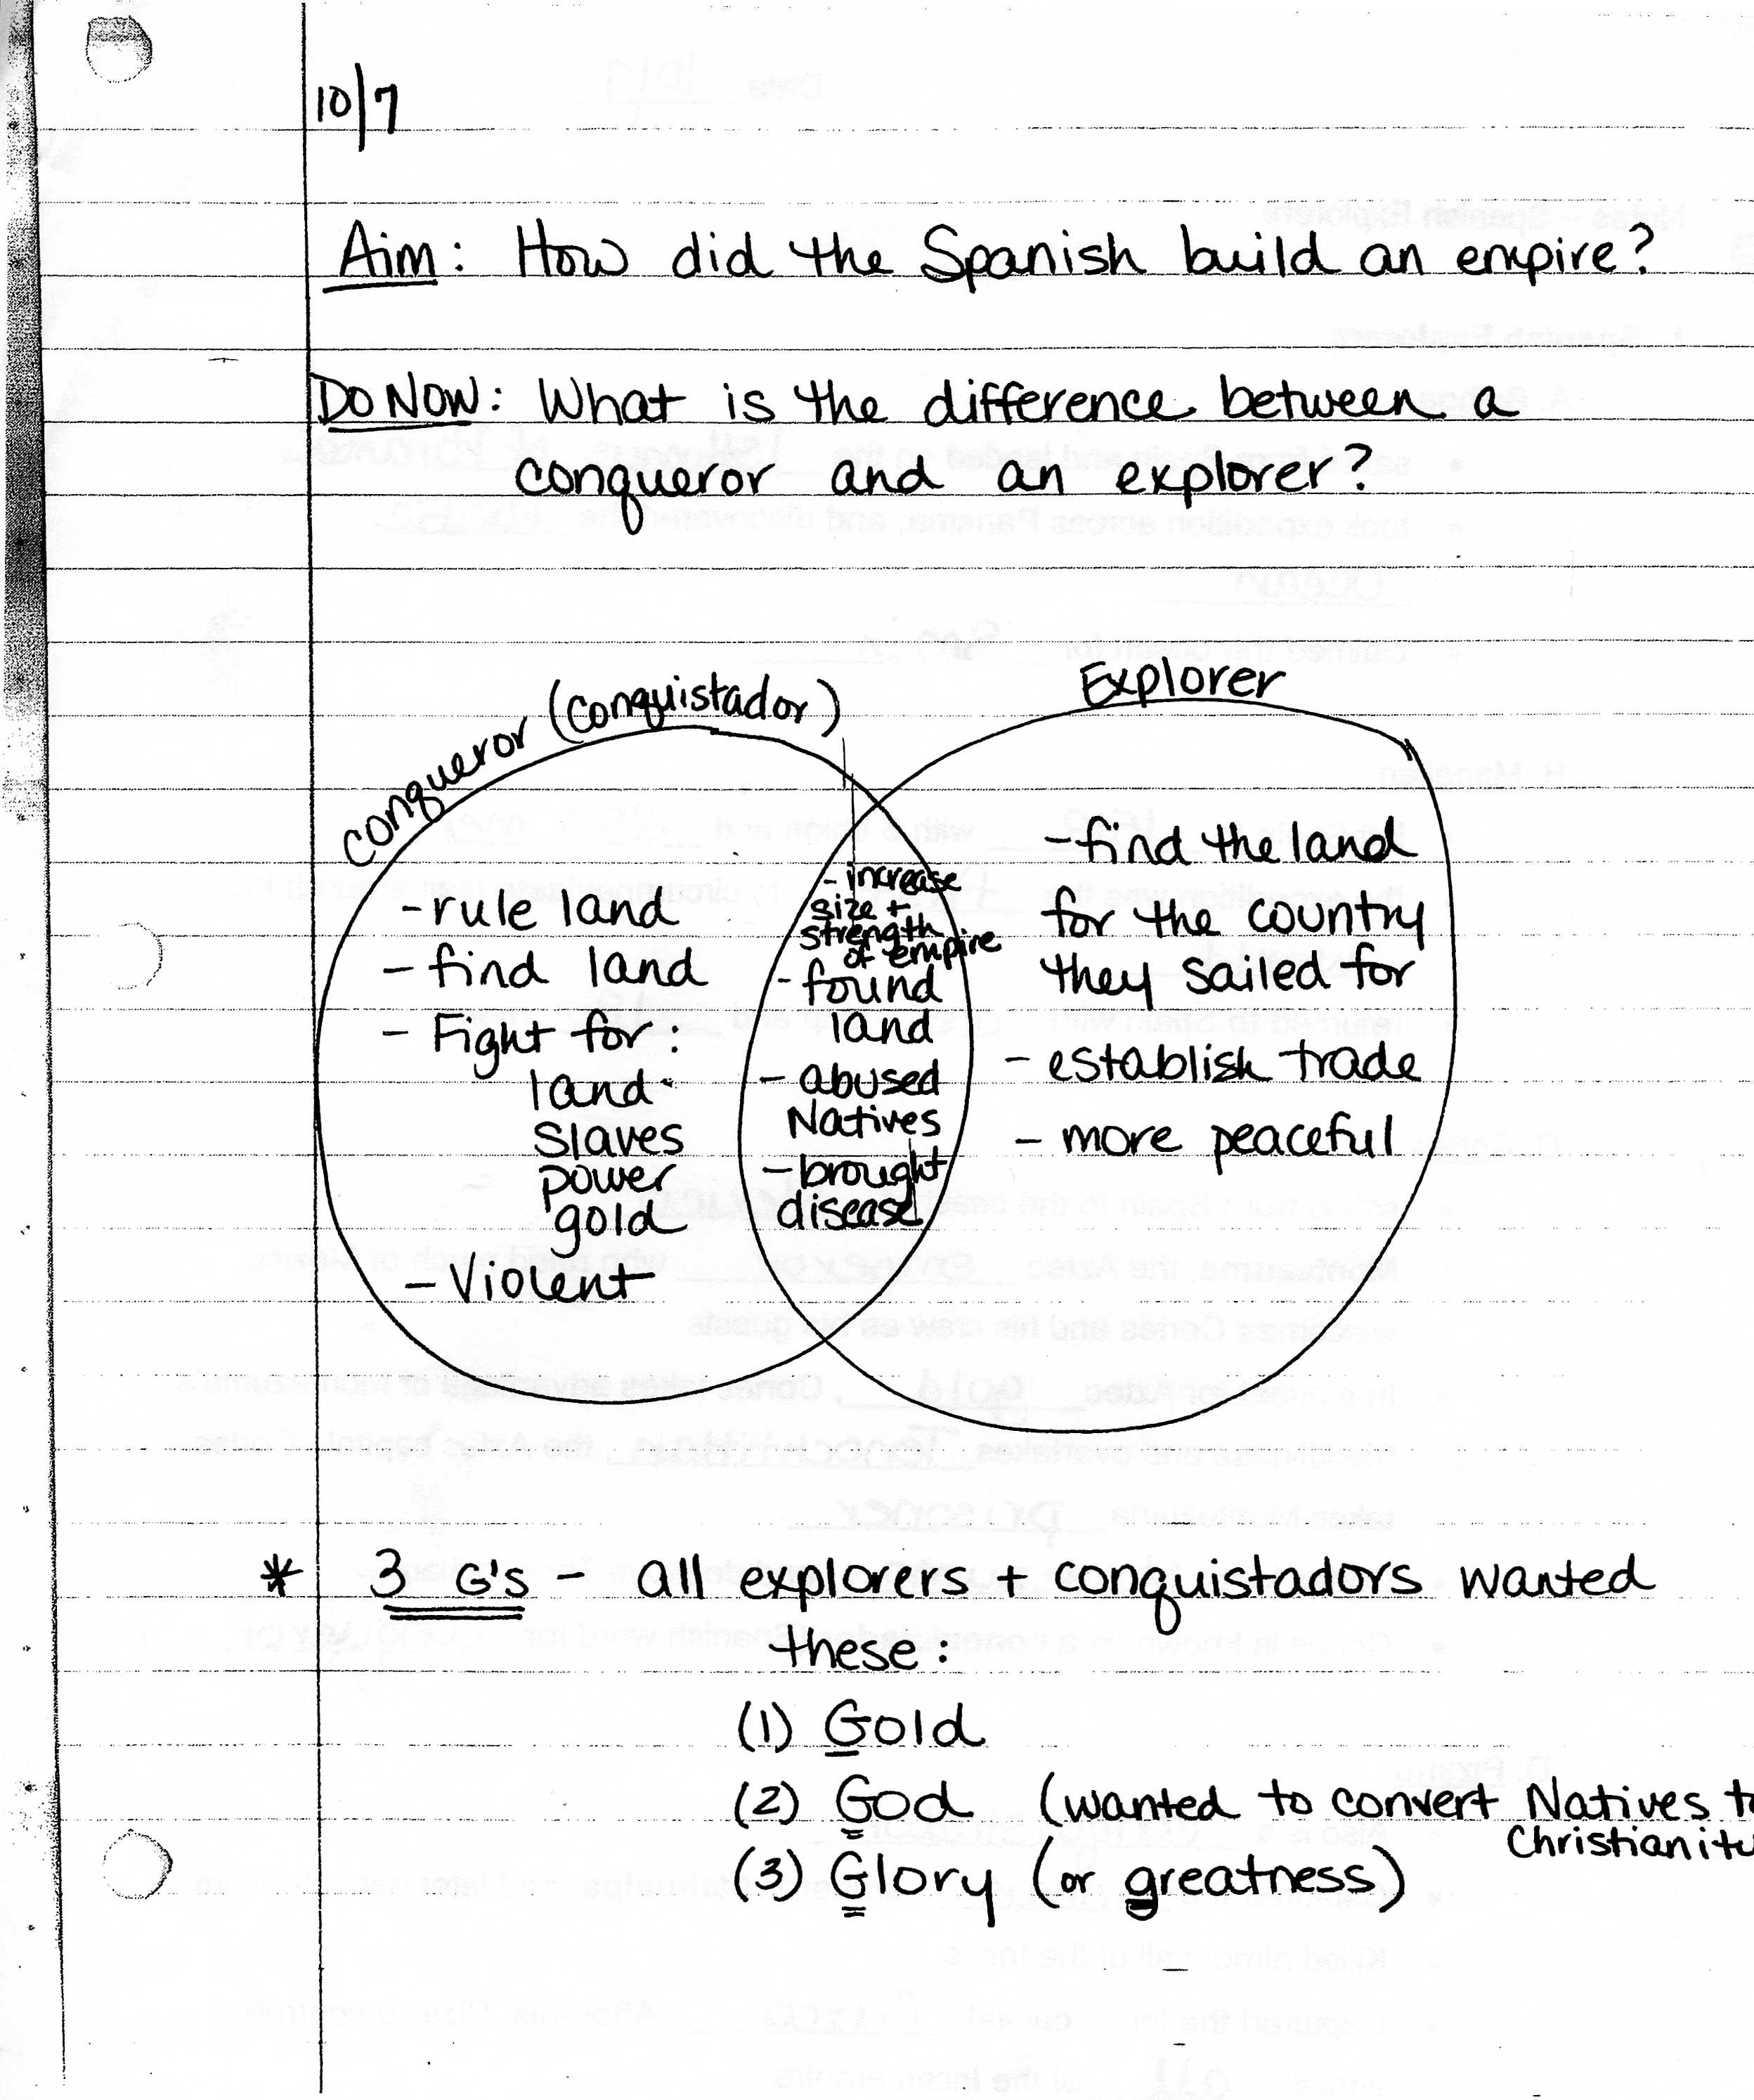 10/7
Aim: How did the Spanish build an empire?
DO NOW: What is the difference between a
conqueror and an explorer?
conqueror (conquistador)
- rule land
- find land
- Fight for:
land
Slaves
power
gold
- Violent
- increase
size +
strength
of empire
- found
land
- abused
Natives
- brought
disease
Explorer
- find the land
for the country
they sailed for
- establish trade
- more peaceful
* 3 G's - all explorers + conquistadors wanted
these:
(1) Gold
(2) God (wanted to convert Natives to
Christianity
(3) Glory (or greatness)